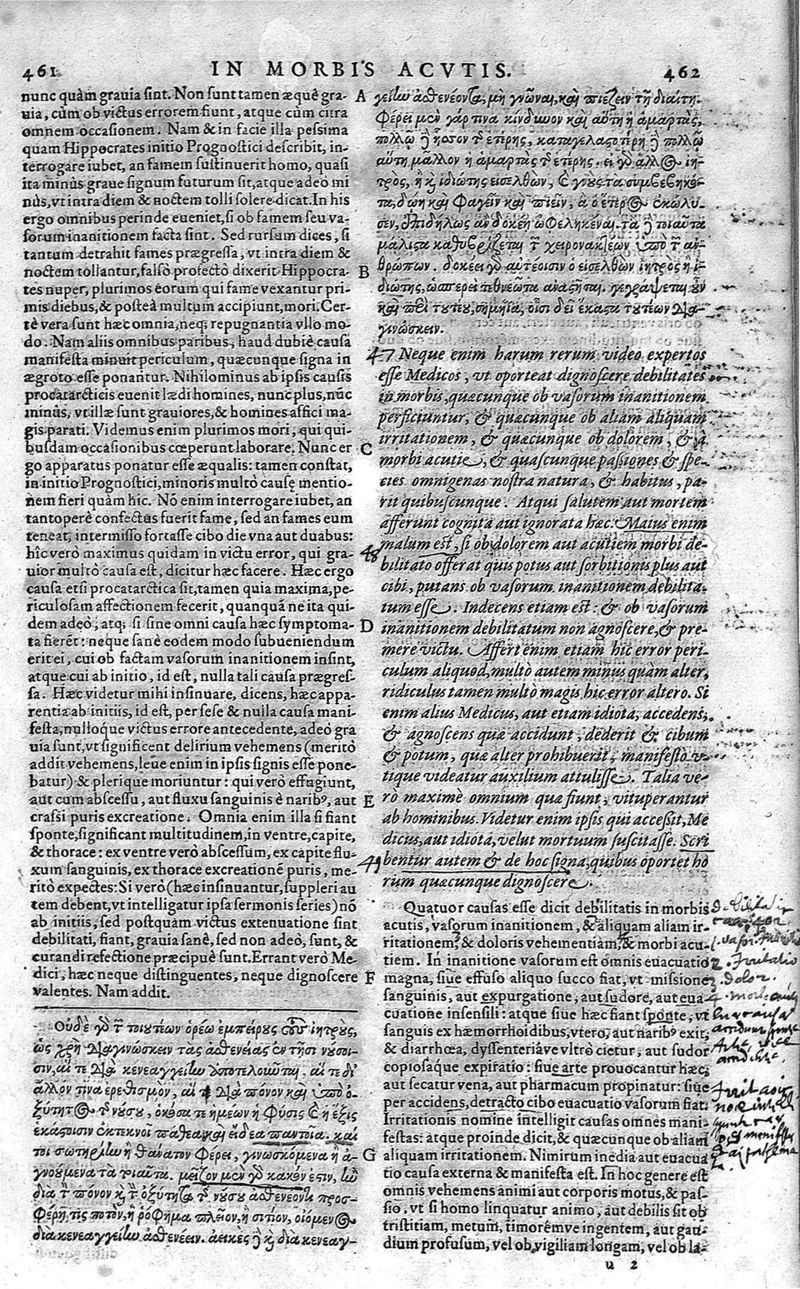 461 IN MORBIS ACVTIS. 462
nunc quàm grauia sint. Non sunt tamen æquè gra-
uia, cùm ob victus errorem fiunt, atque cùm citra
omnem occasionem. Nam & in facie illa pessima
quam Hippocrates initio Prognostici describit, in-
terrogare iubet, an famem sustinuerit homo, quasi
ita minùs graue signum futurum sit, atque adeò mi
nùs, vt intra diem & noctem tolli solere dicat. In his
ergo omnibus perinde eueniet, si ob famem seu va-
sorum inanitionem facta sint. Sed rursum dices, si
tantum detrahit fames prægressa, vt intra diem &
noctem tollantur, falsò profectò dixerit Hippocra-
tes nuper, plurimos eorum qui fame vexantur pri-
mis diebus, & posteà multum accipiunt, mori. Cer-
tè vera sunt hæc omnia, neq; repugnantia vllo mo-
do. Nam aliis omnibus paribus, haud dubiè causa
manifesta minuit periculum, quæcunque signa in
ægroto esse ponantur. Nihilominus ab ipsis causis
procatarcticis euenit lædi homines, nunc plus, nūc
minùs, vt illæ sunt grauiores, & homines affici ma-
gis parati. Videmus enim plurimos mori, qui qui-
busdam occasionibus cœperunt laborare. Nunc er
go apparatus ponatur esse æqualis: tamen constat,
in initio Prognostici, minoris multò causę mentio-
nem fieri quàm hic. Nō enim interrogare iubet, an
tantoperè confectus fuerit fame, sed an fames eum
teneat, intermisso fortasse cibo die vna aut duabus:
hîc verò maximus quidam in victu error, qui gra-
uior multò causa est, dicitur hæc facere. Hæc ergo
causa etsi procatarctica sit, tamen quia maxima, pe-
riculosam affectionem fecerit, quanquā ne ita qui-
dem adeò, atq; si sine omni causa hæc symptoma-
ta fierēt: neque sanè eodem modo subueniendum
erit ei, cui ob factam vasorum inanitionem insint,
atque cui ab initio, id est, nulla tali causa prægres-
sa. Hæc videtur mihi insinuare, dicens, hæc appa-
rentia ab initiis, id est, per sese & nulla causa mani-
festa, nulloque victus errore antecedente, adeò gra
uia sunt, vt significent delirium vehemens (meritò
addit vehemens, leue enim in ipsis signis esse pone-
batur) & plerique moriuntur: qui verò effugiunt,
aut cum abscessu, aut fluxu sanguinis è narib⁹, aut
crassi puris excreatione. Omnia enim illa si fiant
sponte, significant multitudinem, in ventre, capite,
& thorace: ex ventre verò abscessum, ex capite flu-
xum sanguinis, ex thorace excreationē puris, me-
ritò expectes: Si verò (hæc insinuantur, suppleri au
tem debent, vt intelligatur ipsa sermonis series) nō
ab initiis, sed postquam victus extenuatione sint
debilitati, fiant, grauia sanè, sed non adeò, sunt, &
curandi refectione præcipuè sunt. Errant verò Me-
dici, hæc neque distinguentes, neque dignoscere
valentes. Nam addit.
Οὐδὲ γὰρ τῶν τοιουτέων ὁρέω ἐμπείρους τοὺς ἰητροὺς,
ὡς χρὴ διαγινώσκειν τὰς ἀσθενείας ἐν τῇσι νούσοι-
σιν, αἵ τε διὰ κενεαγγείην
ἄλλον τινα ἐρεθισμὸν, αἵ διὰ πόνον καὶ ὑπὸ ὀ-
ξύτητος τῆς νούσου, ὁκόσα τε ἡμέων ἡ φύσις καὶ ἡ ἕξις
ἑκάστοισιν ἐκτεκνοῖ πάθεα καὶ εἴδεα παντοῖα. καί
τοι σωτηρίην ἢ θάνατον φέρει, γινωσκόμενα ἢ ἀ-
γνοούμενα τὰ τοιαῦτα. μεῖζον μὲν γὰρ κακόν ἐστιν, ἢν
διὰ τὸν πόνον καὶ τὴν ὀξύτητα τῆς νούσου ἀσθενέοντι προσ-
φέρῃ τις ποτὸν, ἢ ῥόφημα πλεῖον, ἢ σιτίον, οἰόμενος
διὰ κενεαγγείην ἀσθενέειν. ἀεικὲς δὲ καὶ διὰ κενεαγ-
A
B
C
D
E
F
G
γείην ἀσθενέοντα, μὴ γνῶναι, καὶ πιέζειν τῇ διαίτῃ.
φέρει μὲν γάρ τινα κίνδυνον καὶ αὕτη ἡ ἁμαρτὰς,
πολλῷ δὲ ἧσσον τῆς ἑτέρης, καταγελαστοτέρη δὲ πολλῷ
αὕτη μᾶλλον ἡ ἁμαρτὰς τῆς ἑτέρης. εἰ γὰρ ἄλλος ἰη-
τρὸς, ἢ καὶ ἰδιώτης εἰσελθὼν, καὶ γνοὺς τὰ συμβεβηκό-
τα, δῴη καὶ φαγεῖν καὶ πιεῖν, ἃ ὁ ἕτερος ἐκώλυ-
σεν, ἐπιδήλως ἂν δοκέῃ ὠφεληκέναι. τὰ δὲ τοιαῦτα
μάλιστα καθυβρίζεται τῶν χειρωνακτέων ὑπὸ τῶν ἀν-
θρώπων. δοκέει γὰρ αὐτέοισιν ὁ εἰσελθὼν ἰητρὸς ἢ ἰ-
διώτης, ὥσπερεὶ τεθνεῶτα ἀναστῆσαι. γεγράψεται οὖν
καὶ περὶ τούτου, σημήϊα, οἷσι δεῖ ἕκαστα τουτέων δια-
γινώσκειν.
47 Neque enim harum rerum video expertos
esse Medicos, vt oporteat dignoscere debilitates
in morbis, quæcunque ob vasorum inanitionem
perficiuntur, & quæcunque ob aliam aliquam
irritationem, & quæcunque ob dolorem, & à
morbi acutie, & quascunque passiones & spe-
cies omnigenas nostra natura, & habitus, pa-
rit quibuscunque. Atqui salutem aut mortem
afferunt cognita aut ignorata hæc. Maius enim
48 malum est, si ob dolorem aut acutiem morbi de-
bilitato offerat quis potus aut sorbitionis plus aut
cibi, putans ob vasorum inanitionem debilita-
tum esse. Indecens etiam est: & ob vasorum
inanitionem debilitatum non agnoscere, & pre-
mere victu. Affert enim etiam hic error peri-
culum aliquod, multò autem minus quàm alter,
ridiculus tamen multò magis hic error altero. Si
enim alius Medicus, aut etiam idiota, accedens,
& agnoscens quæ accidunt, dederit & cibum
& potum, quæ alter prohibuerit, manifestò v-
tique videatur auxilium attulisse. Talia ve-
rò maximè omnium quæ fiunt, vituperantur
ab hominibus. Videtur enim ipsis qui accessit, Me
dicus, aut idiota, velut mortuum suscitasse. Scri
49 bentur autem & de hoc signa, quibus oportet ho
rum quæcunque dignoscere.
Quatuor causas esse dicit debilitatis in morbis
acutis, vasorum inanitionem, & aliquam aliam ir-
ritationem, & doloris vehementiam, & morbi acu-
tiem. In inanitione vasorum est omnis euacuatio
magna, siue effuso aliquo succo fiat, vt missione
sanguinis, aut expurgatione, aut sudore, aut eua
cuatione insensili: atque siue hæc fiant sponte, vt
sanguis ex hæmorrhoidibus, vtero, aut narib⁹ exit,
& diarrhœa, dysenteriáve vltrò cietur, aut sudor
copiosaque expiratio: siue arte prouocantur hæc,
aut secatur vena, aut pharmacum propinatur: siue
per accidens, detracto cibo euacuatio vasorum fiat.
Irritationis nomine intelligit causas omnes mani-
festas: atque proinde dicit, & quæcunque ob aliam
aliquam irritationem. Nimirum inedia aut euacua
tio causa externa & manifesta est. In hoc genere est
omnis vehemens animi aut corporis motus, & pas-
sio, vt si homo linquatur animo, aut debilis sit ob
tristitiam, metum, timorémve ingentem, aut gau-
dium profusum, vel ob vigiliam longam, vel ob la-
u 2